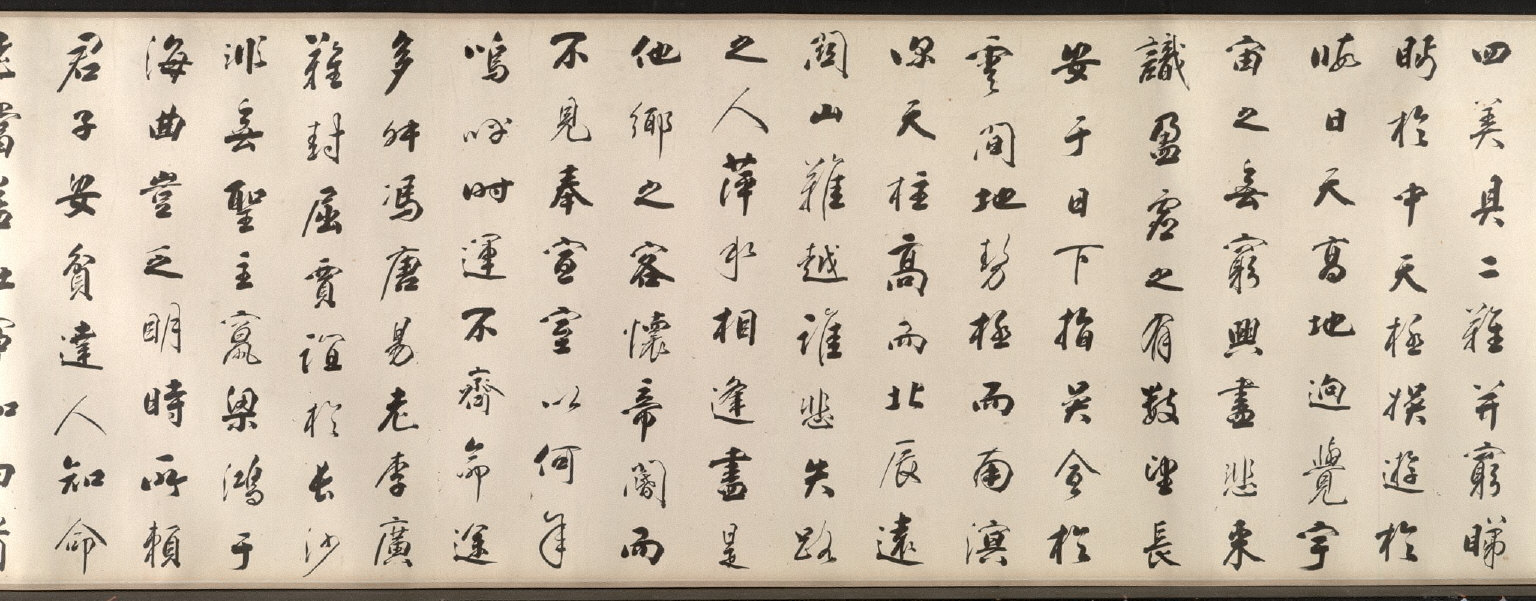 四美具二難并窮睇
眄於中天極娛遊於
暇日天高地迥覺宇
宙之無窮興盡悲來
識盈虛之有數望長
安于日下指吳會於
雲間地勢極而南溟
深天柱高而北辰遠
關山難越誰悲失路
之人萍水相逢盡是
他鄉之客懷帝閽而
不見奉宣室以何年
嗚呼時運不齊命途
多舛馮唐易老李廣
難封屈賈誼於長沙
非無聖主竄梁鴻于
海曲豈乏明時所賴
君子安貧達人知命